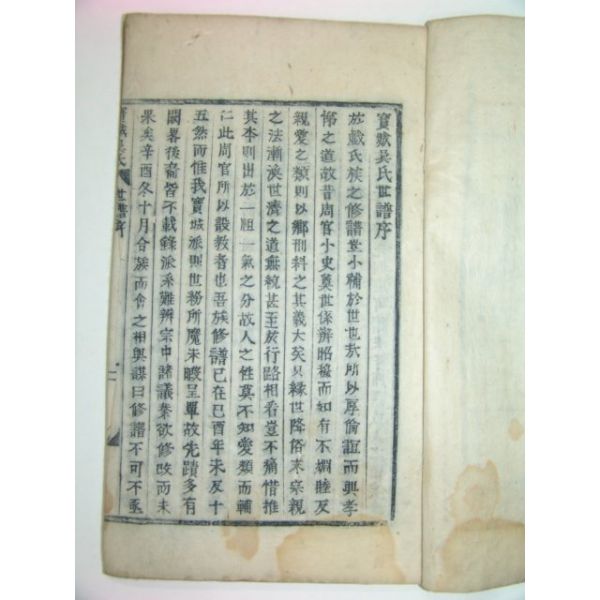 寶城吳氏世譜序
於戱氏族之修譜豈小補於世也㢤所以厚倫誼而興孝
悌之道故昔周官小史奠世係辨昭穆而如有不婣睦及
親愛之類則以鄕刑糾之其義大矣具緣世降俗末宗親
之法漸渙世濟之道無統甚至於行路相看豈不痛惜推
其本則出於一祖一氣之分故人之性莫不知愛類而輔
仁此周官所以設教者也吾族修譜已在己酉年未及十
五然而惟我寶城派則世務所魔未暇呈單故先蹟多有
闕畧後裔皆不載錄派系難辨宗中諸議葉欲修改而未
果矣辛酉冬十月合族而會之相與謀曰修譜不可不亟
寶城吳氏 世譜序 一